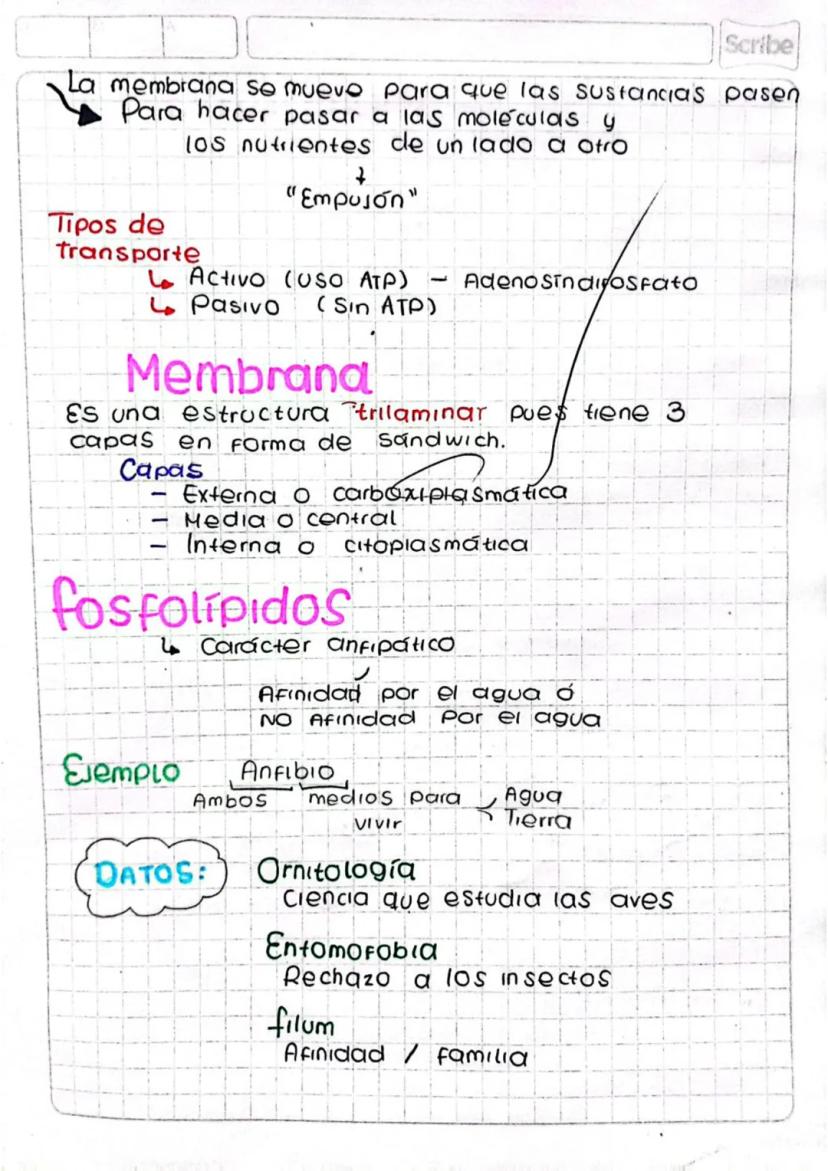 Scribe
La membrana se mueve para que las sustancias pasen
Para hacer pasar a las moléculas y
los nutrientes de un lado a otro
"Empujón"
Tipos de
transporte
Activo (uso ATP) - Adenosíndifosfato
Pasivo (Sin ATP)
Membrana
Es una estructura trilaminar pues tiene 3
capas en forma de sándwich.
Capas
- Externa o carboxiplasmática
- Media o central
- Interna o citoplasmática
Fosfolípidos
Carácter anfipático
Afinidad por el agua ó
NO Afinidad por el agua
Ejemplo Anfibio
Ambos medios para Agua
vivir Tierra
DATOS: Ornitología
Ciencia que estudia las aves
Entomofobia
Rechazo a los insectos
filum
Afinidad / familia